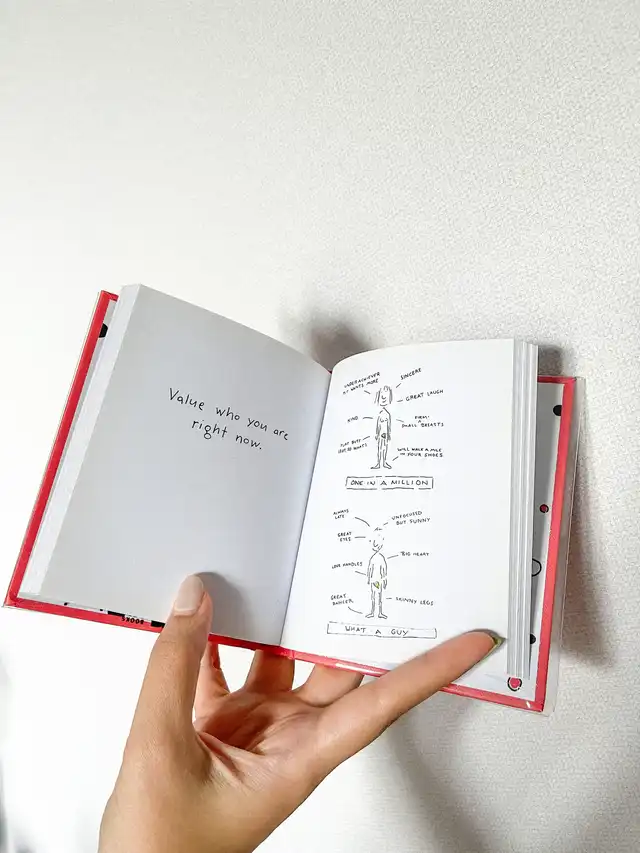 Value who you are
right now.
UNDERACHIEVER
WANTS MORE
SINCERE
GREAT LAUGH
KIND
FIRM-
SMALL BREASTS
FLAT BUTT
WILL WALK A MILE
IN YOUR SHOES
ONE IN A MILLION
ALWAYS
LATE
UNFOCUSED
BUT SUNNY
GREAT
EYES
BIG HEART
LOVE HANDLES
GREAT
DANCER
SKINNY LEGS
WHAT A GUY
BOOKS